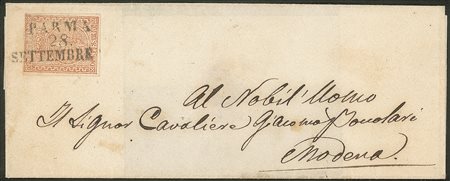 PARMA
28
SETTEMBRE
Al Nobil Uomo
Il Signor Cavaliere Giacomo
Modena